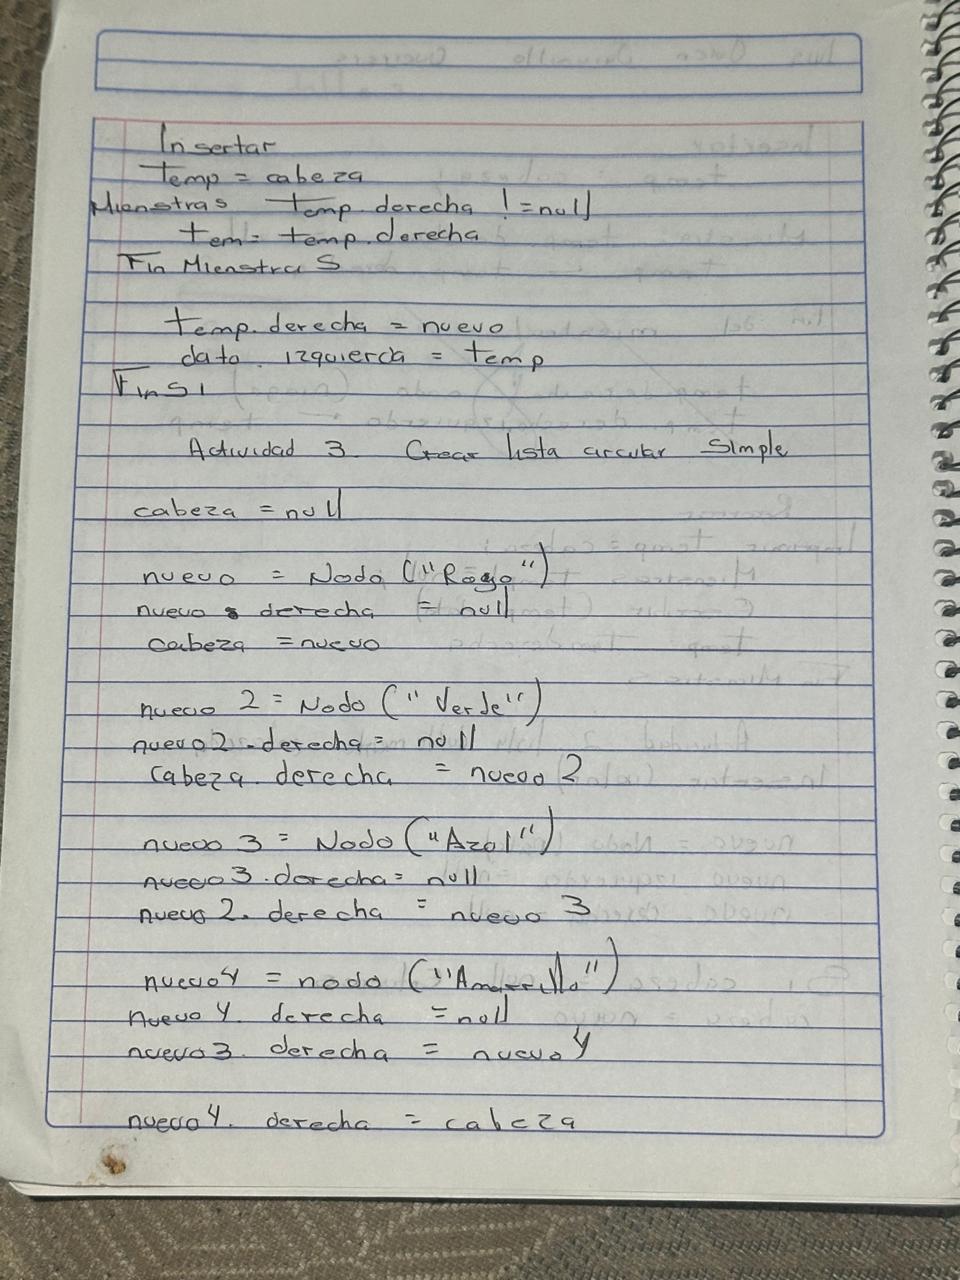 Insertar
Temp = cabeza
Mienstras Temp.derecha != null
tem = temp.derecha
Fin Mienstras
temp.derecha = nuevo
dato.izquierda = temp
Fin Si
Actividad 3. Crear lista circular Simple
cabeza = null
nuevo = Nodo ("Rogo")
nuevo . derecha = null
cabeza = nuevo
nuevo 2 = Nodo ("Verde")
nuevo 2.derecha = null
cabeza.derecha = nuevo 2
nuevo 3 = Nodo ("Azul")
nuevo 3.derecha = null
nuevo 2.derecha = nuevo 3
nuevo 4 = nodo ("Amarillo")
nuevo 4. derecha = null
nuevo 3. derecha = nuevo 4
nuevo 4. derecha = cabeza